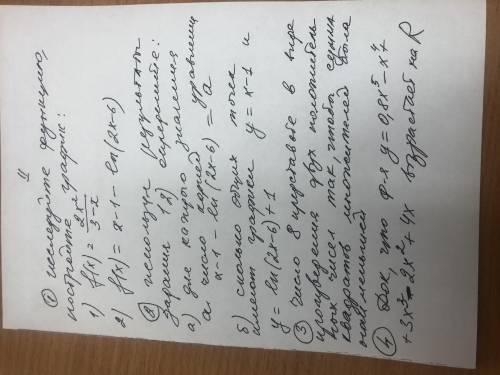 ① исследуйте функцию,
и
постройте график:
1) f(x) = 2x²/(3-x)
2) f(x) = x-1 - ln(2x-6)
② используя результаты
задания 1 2) определите:
а) для каждого значения
a число корней уравнения
x-1 - ln(2x-6) = a
б) сколько общих точек
имеют графики y = x-1 и
y = ln(2x-6)+1
③ число 8 представьте в виде
произведения двух положитель
ных чисел так, чтобы сумма
квадратов множителей была
наименьшей
④ Док, что ф-я y = 0,8x⁵ - x⁴ +
+ 3x³ - 2x² + 4x возрастает на R